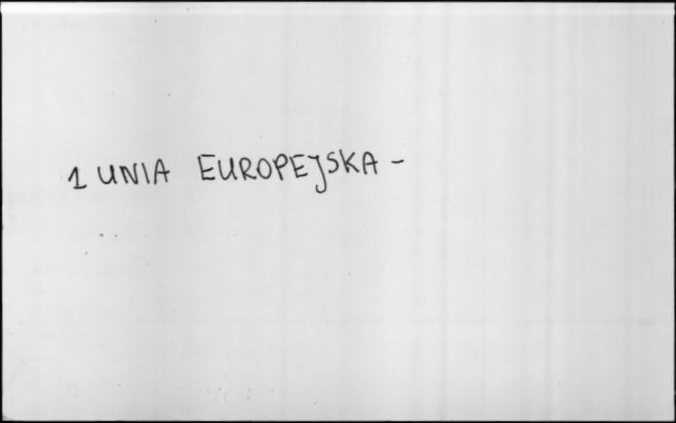 1 UNIA EUROPEJSKA -